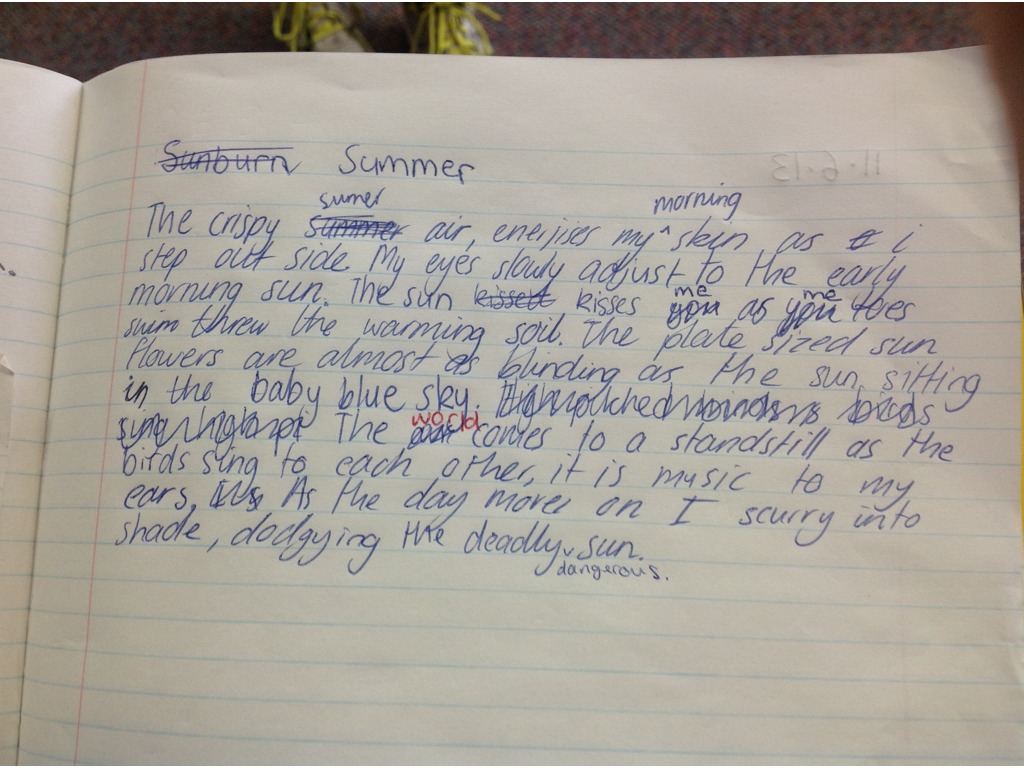 Sunburn Summer
11.6.13
sumer morning
The crispy summer air, enerjises my^ skin, as i
step out side. My eyes slowly adjust to the early
morning sun. The sun kissett kisses you me as you me toes
swim threw the warming soil. The plate sized sun
flowers are almost as blinding as the sun, sitting
in the baby blue sky. birds
The world comes to a standstill as the
birds sing to each other, it is music to my
ears, As the day moves on I scurry into
shade, dodgying the deadly, sun.
dangerous.